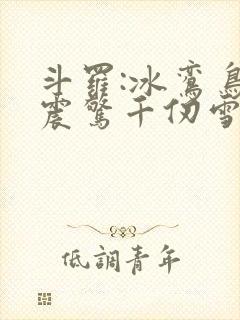 斗羅:冰鸞鳥
震驚千仞雪
低調青年